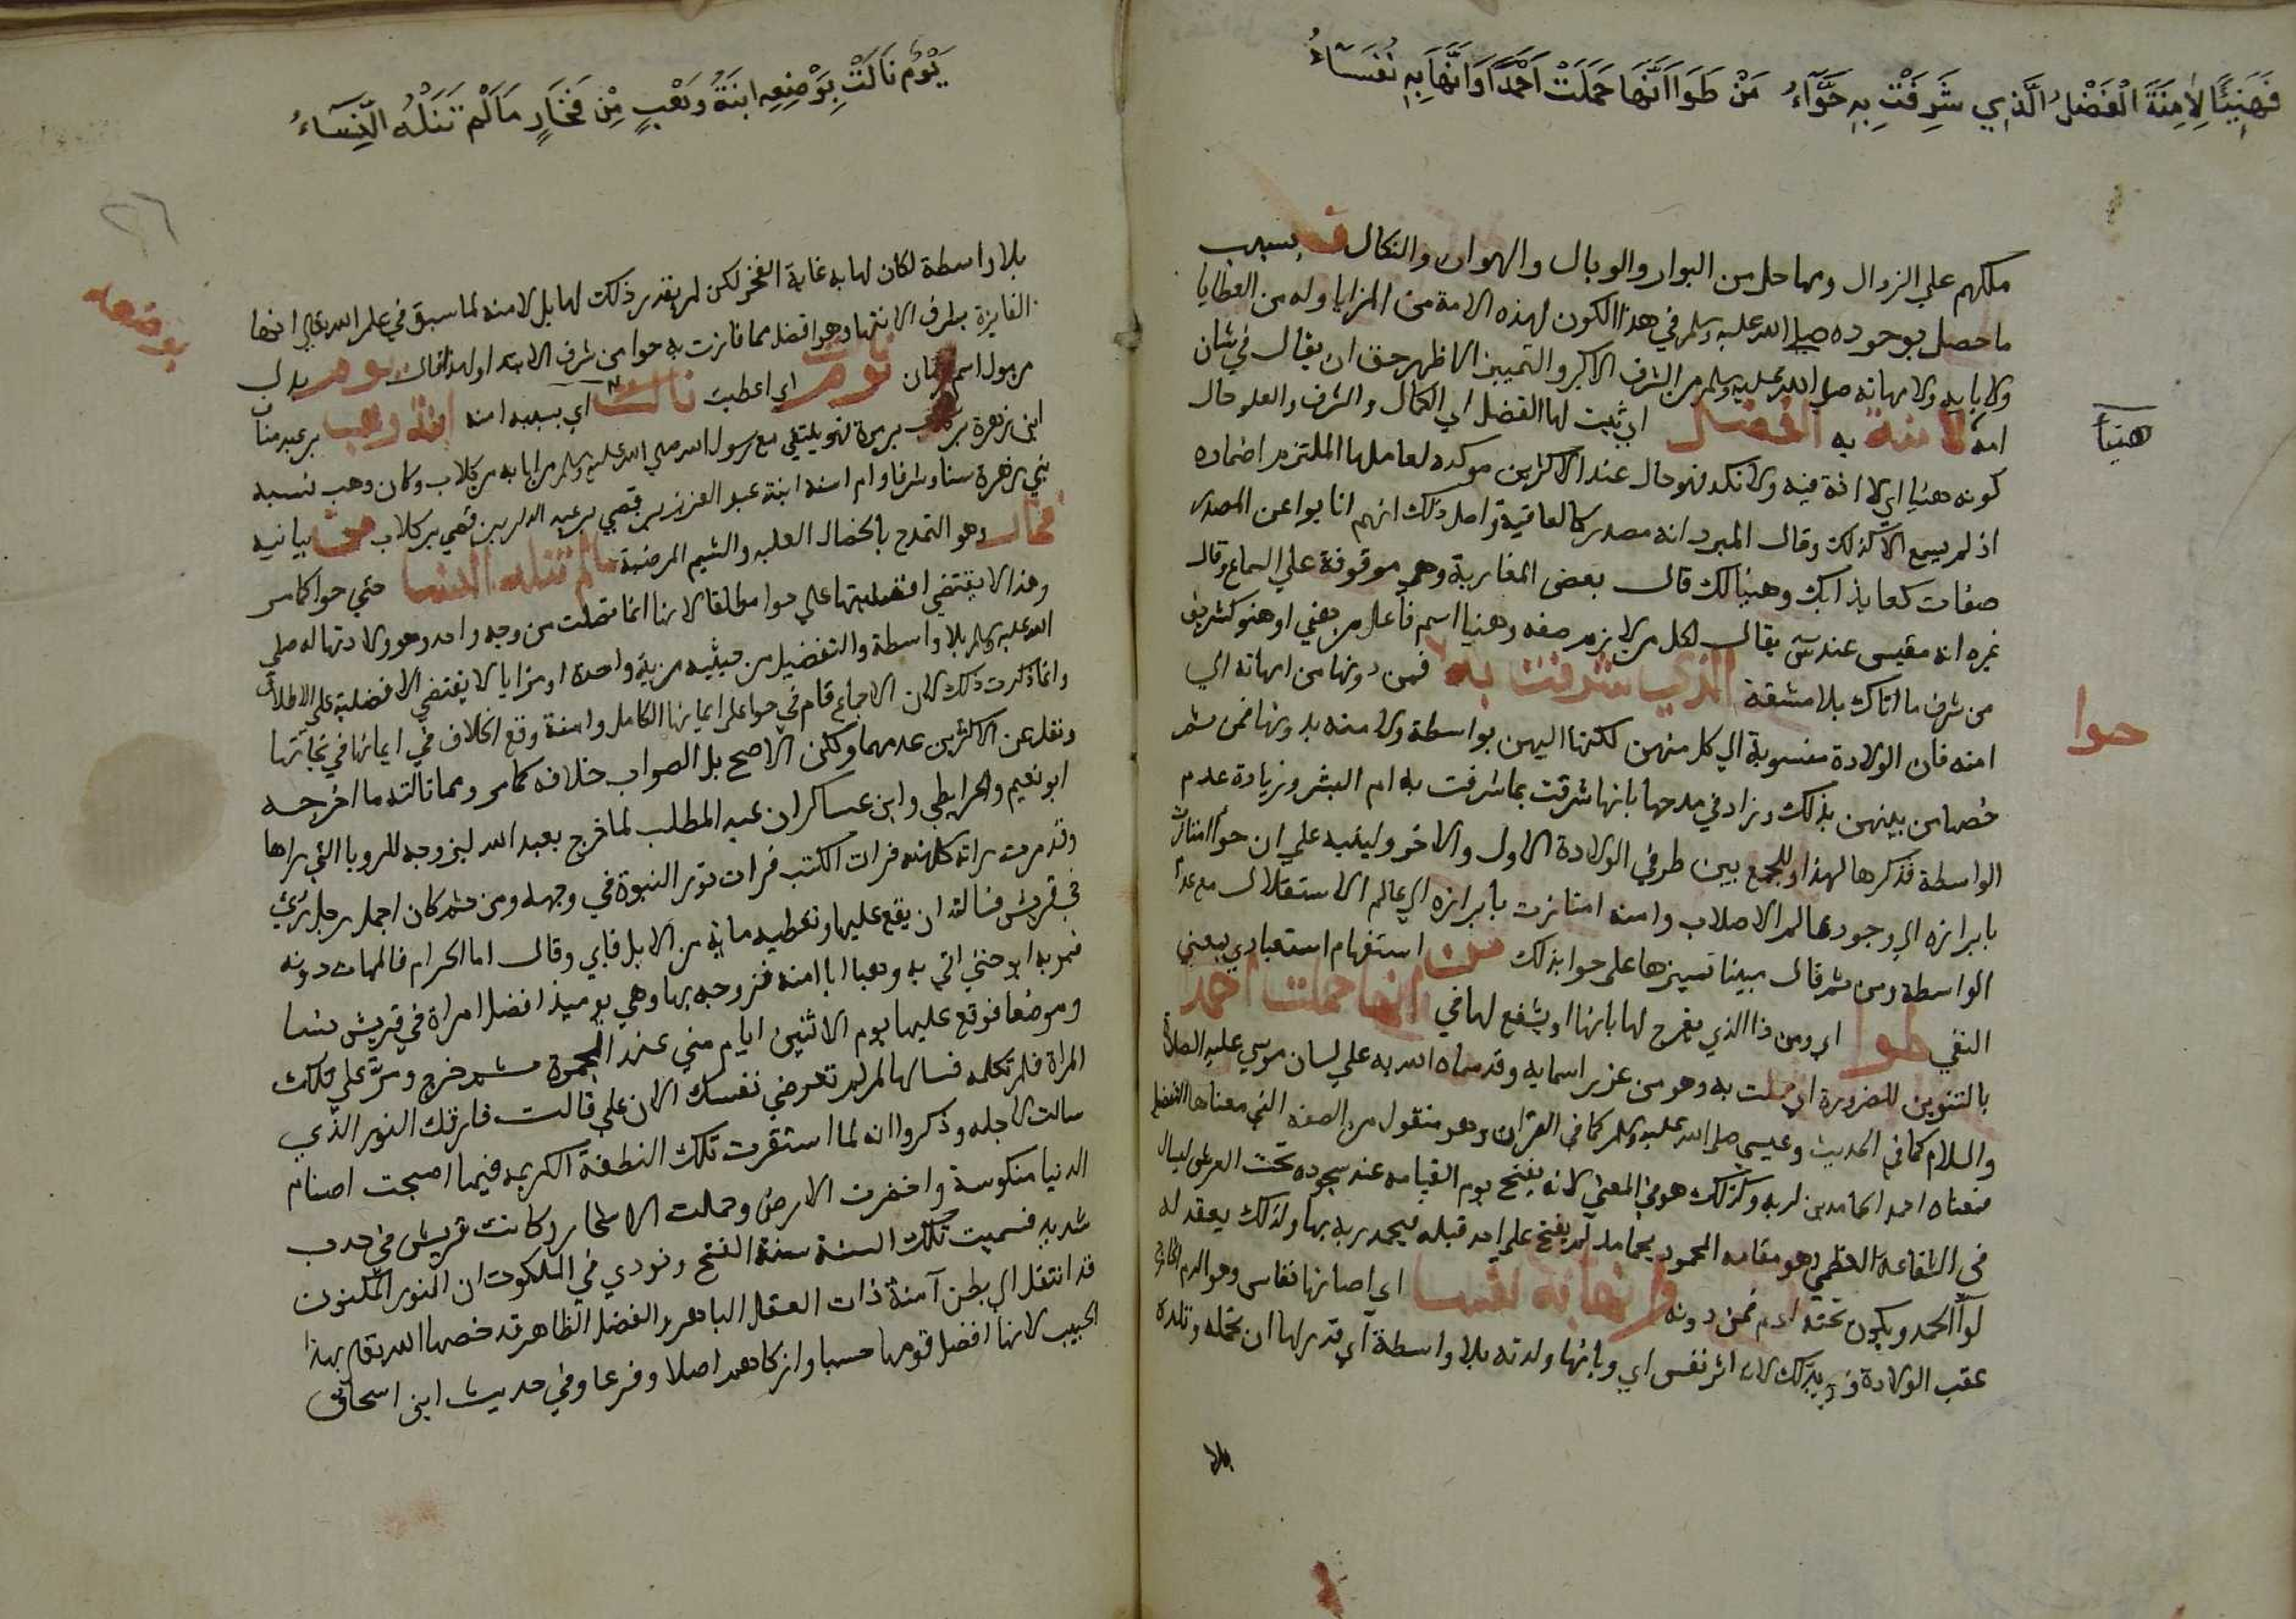 فَهَنِيْئًا لِاٰمِنَةَ الْفَضْلُ الَّذِي شَرِفَتْ بِهِ حَوَّآءُ مَنْ طَوَا اَنَّهَا حَمَلَتْ اَحْمَدًا وَانَّهَا بِهِ نُفَسَآءُ
ملكهم علي الزوال ومما حل من البوار والوبال والهوان والنكال بسبب
ما حصل بوجوده صلى الله عليه وسلم في هذا الكون لهذه الامة من المزايا وله من العطايا
ولابايه ولامهاته صلي الله عليه وسلم من الشرف الاكبر والتمييز الاظهر حق ان يقال في شان
امه لامنة به الفضل اي ثبت لها الفضل اي الكمال والشرف والعلو حال
هنيأ
كونه هنيا اي لا افة فيه ولا نكد فهو حال عند الاكثرين موكده لعاملها الملتزم اضماره
اذ لم يسمع الا كذلك وقال المبرد انه مصدر كالعافية واصل ذلك انهم انابوا عن المصدر
صفات كعايذا بك وهنيا لك قال بعض المغاربة وهي موقوفة علي السماع وقال
غيره انه مقيس عند س يقال لكل من لازم صفه وهنيا اسم فاعل من هني او هنو كشريف
من شرف ما اتاك بلا مشقة الذي شرفت به فمن دونها من امهاته الي
حوا
امنه فان الولادة منسوبة الي كل منهن لكنها اليهن بواسطة ولامنه بدونها فمن ثم
خصها من بينهن بذلك وزاد في مدحها بانها شرفت بما شرفت به ام البشر وزيادة عدم
الواسطة فذكرها لهذا وللجمع بين طرفي الولادة الاول والاخر ولينبه علي ان حوا امتازت
بابرازه الي وجود عالم الاصلاب وامنه امتازت بابرازه الي عالم الاستقلال مع عدم
الواسطة ومن ثم قال مبينا تميزها علي حوا بذلك من استفهام استبعادي بمعني
النفي طوا اي ومن ذا الذي يفرح لها بانها او يشفع لها في انها حملت احمد
بالتنوين للضرورة اي حملت به وهو من عزيز اسمايه وقد سماه الله به علي لسان موسي عليه الصلاة
والسلام كما في الحديث وعيسي صلى الله عليه وسلم كما في القران وهو منقول من الصفه التي معناها التفضيل
فمعناه احمد الحامدين لربه وكذلك هو في المعني لانه يفتح يوم القيامه عند سجوده تحت العرش ليسال
في الشفاعه العظمي وهو مقامه المحمود بمحامد لم يفتح علي احد قبله فيحمد ربه بها ولذلك يعقد له
لوآ الحمد ويكون تحته ادم فمن دونه وانها به نفسا اي اصابها نفاس وهو الدم الخارج
عقب الولادة لانه اثر نفس اي وبانها ولدته بلا واسطة اي قدر لها ان تحمله وتلده
بلا
يَوْمَ نَالَتْ بِوَضْعِهِ ابْنَةُ وَهْبٍ مِنْ فَخَارٍ مَا لَمْ تَنَلْهُ النِّسَآءُ
٢٦
بلا واسطة لكان لها به غاية الفخر لكن لم يقدر ذلك لها بل لامنه لما سبق في علم الله تعالي انها
بوضعه
الفايزة بطرف الانتها وهو افضل مما فازت به حوا من شرف الابتدا ولهذا قال يوم بدل
اي اعطيت نالت اي بسببه امنه ابنة وهب بن عبد مناف
ابن زهرة بن كلاب بن مرة فهو يلتقي مع رسول الله صلي الله عليه وسلم من ابابه من كلاب وكان وهب نسيبه
بني زهرة سنا وشرفا وام امنه ابنة عبد العزيز بن قصي بن عبد الدار بن قصي بن كلاب من بيانيه
فخار وهو التمدح بالخصال العليه والشيم المرضية ما لم تنله النسا حتي حوا كما مر
وهذا لا يقتضي افضليتها علي حوا مطلقا لانها انما فضلت من وجه واحد وهو ولادتها له صلي
الله عليه وسلم بلا واسطة والتفضيل من حيثيه مزية واحده او مزايا لا يقتضي الافضلية علي الاطلاق
وانما ذكرت ذلك لان الاجماع قام في حوا علي ايمانها الكامل وامنة وقع الخلاف في ايمانها في نجاتها
ونقل عن الاكثرين عدمهما ولكن الاصح بل الصواب خلافه كما مر ومما نالته ما اخرجه
ابو نعيم والخرايطي وابن عساكر ان عبد المطلب لما خرج بعبد الله ليزوجه للرويا التي راها
وقد مرت راته كاهنه قرات الكتب فرات نور النبوة في وجهه ومن ثم كان اجمل رجل رئي
في قريش فسالته ان يقع عليها وتعطيه ماية من الابل فابي وقال اما الحرام فالممات دونه
فمر به ابوه حتي اتي به وهبا ابا امنه فزوجه بها وهي يوميذ افضل امراة في قريش نسبا
وموضعا فوقع عليها يوم الاثنين ايام مني عند الجمرة ثم خرج ومر علي تلك
المراة فلم تكلمه فسالها لم لم تعرضي نفسك الان علي قالت فارقك النور الذي
سالت لاجله وذكروا انه لما استقرت تلك النطفة الكريمه فيها اصبحت اصنام
الدنيا منكوسة واخضرت الارض وحملت الاشجار وكانت قريش في جدب
شديد فسميت تلك السنة سنة الفتح ونودي في الملكوت ان النور المكنون
قد انتقل الي بطن آمنة ذات العقل الباهر والفضل الظاهر قد خصها الله تعالي بهذا
الحبيب لانها افضل قومها حسبا وازكاهم اصلا وفرعا وفي حديث ابن اسحاق